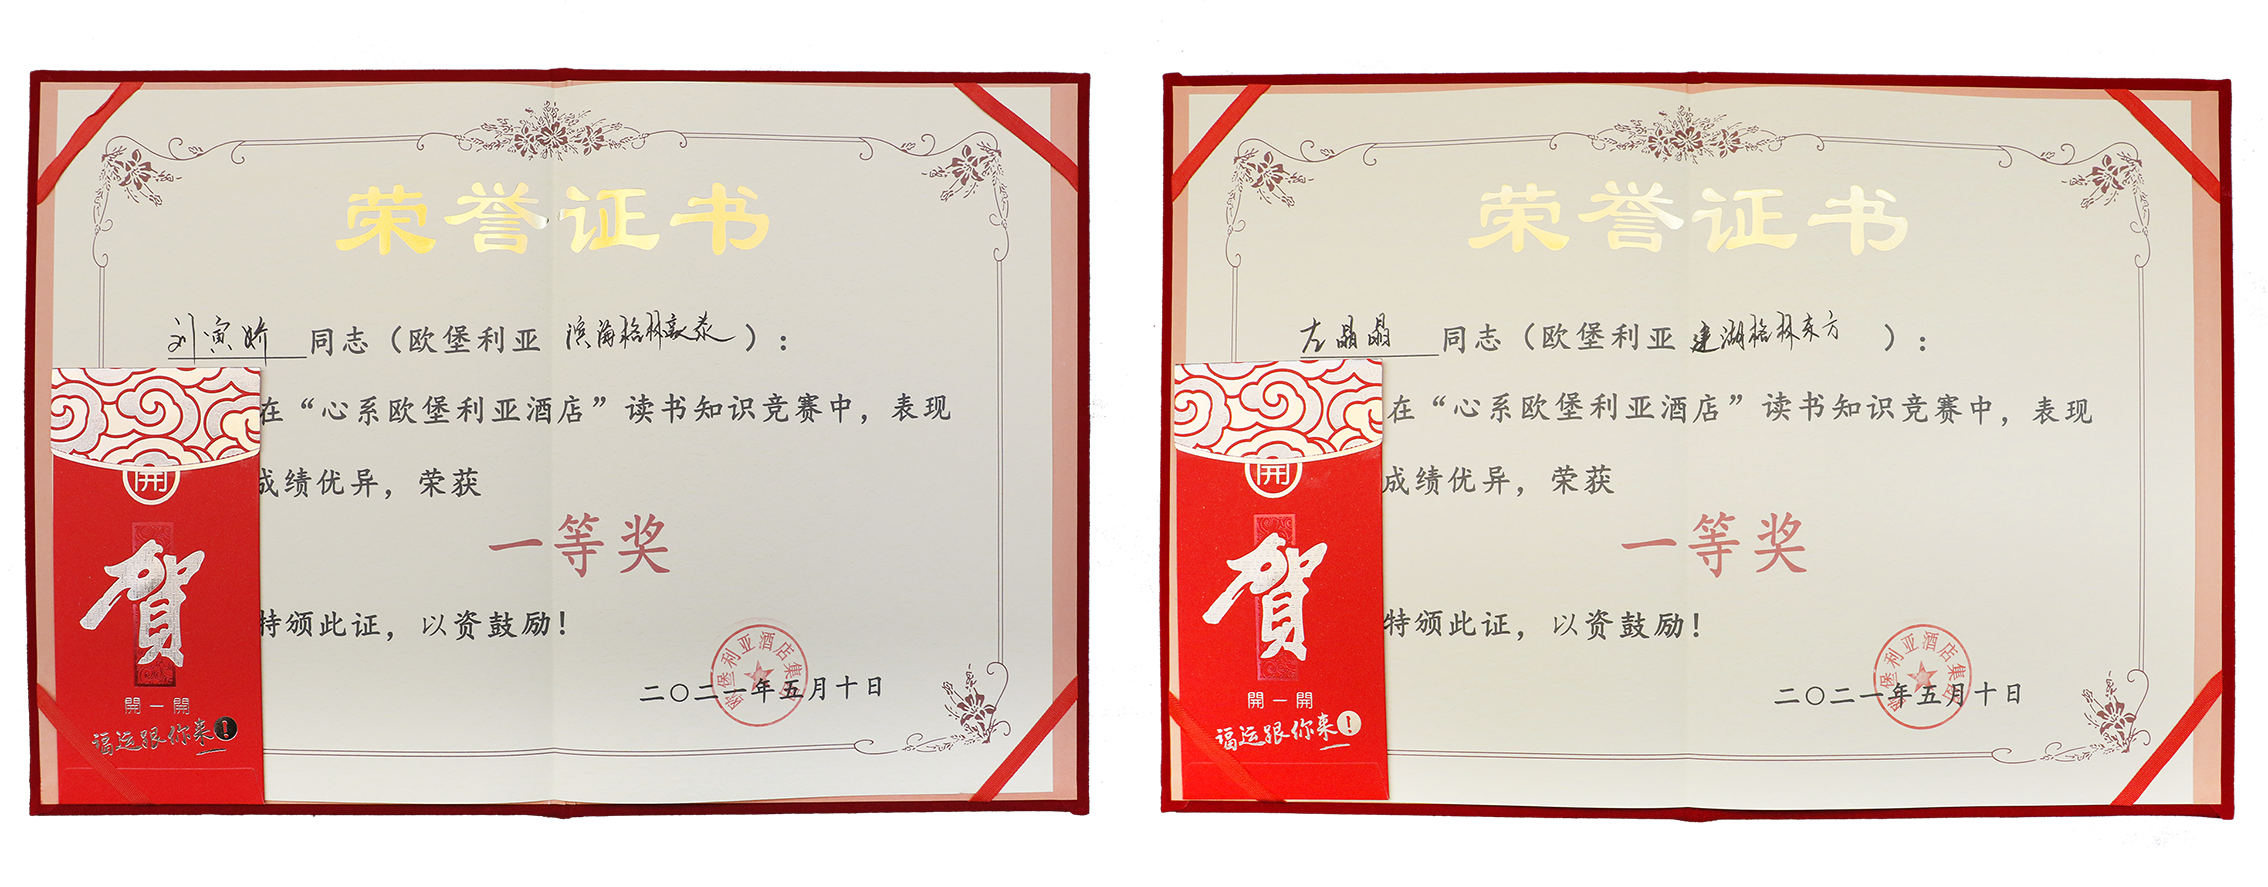 荣誉证书
刘寅娇 同志（欧堡利亚 滨海格林豪泰）：
在“心系欧堡利亚酒店”读书知识竞赛中，表现
成绩优异，荣获
一等奖
特颁此证，以资鼓励！
二〇二一年五月十日
堡利亚酒店集团
開
賀
開一開
福运跟你来！
荣誉证书
左晶晶 同志（欧堡利亚 建湖格林东方）：
在“心系欧堡利亚酒店”读书知识竞赛中，表现
成绩优异，荣获
一等奖
特颁此证，以资鼓励！
二〇二一年五月十日
堡利亚酒店集团
開
賀
開一開
福运跟你来！